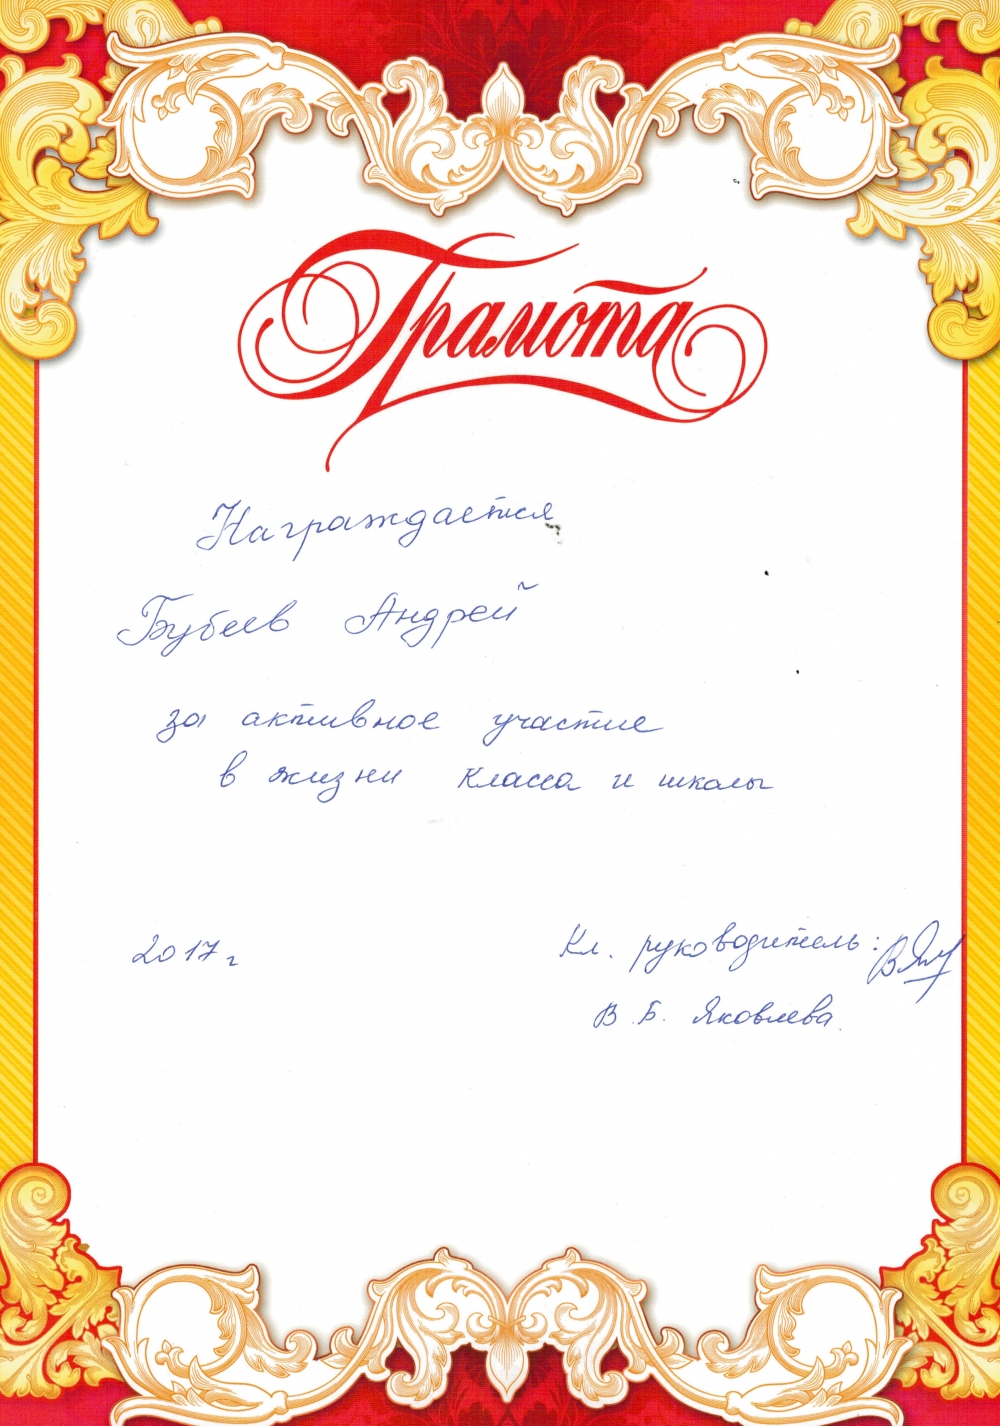 Грамота
Награждается
Бубеев Андрей
за активное участие
в жизни класса и школы
2017г
Кл. руководитель:
В.Б. Яковлева